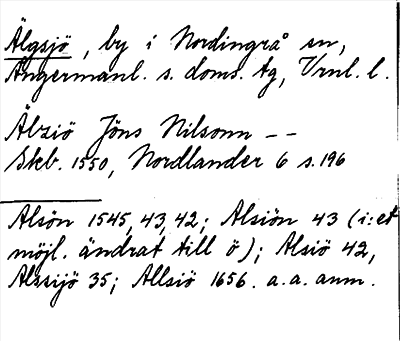 Älgsjö, by i Nordingrå sn,
Ångermanl. s. doms. tg, Vrnl. l.
Älziö Jöns Nilsonn – –
Skb. 1550, Nordlander 6 s. 196
Alsön 1545, 43, 42; Alsiön 43 (i: et
möjl. ändrat till ö); Alsiö 42,
Alssijö 35; Allsiö 1656. a. a. anm.